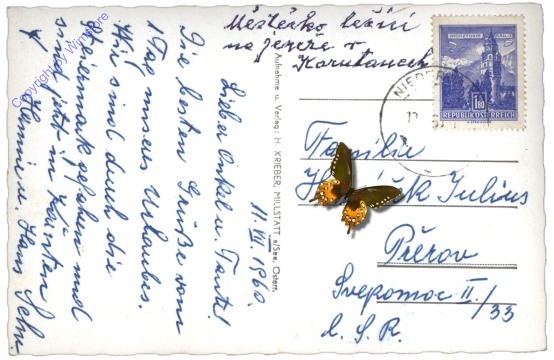 Městečko ležící
na jezeře v
Korutanech
REPUBLIK ÖSTERREICH
1.80
NIEDER
Familie
Julius
Přerov
Svépomoc II/33
Č. S. R.
Aufnahme u. Verlag: H. KRIEBER, MILLSTATT a/See, Österr.
11. VII. 1960.
Lieber Onkel u. Tante!
Die besten Grüße vom
1 Tag unseres Urlaubes.
Wir sind durch die
Steiermark gefahren und
sind jetzt in Kärnten
Hermi u. Hans
Copyright by